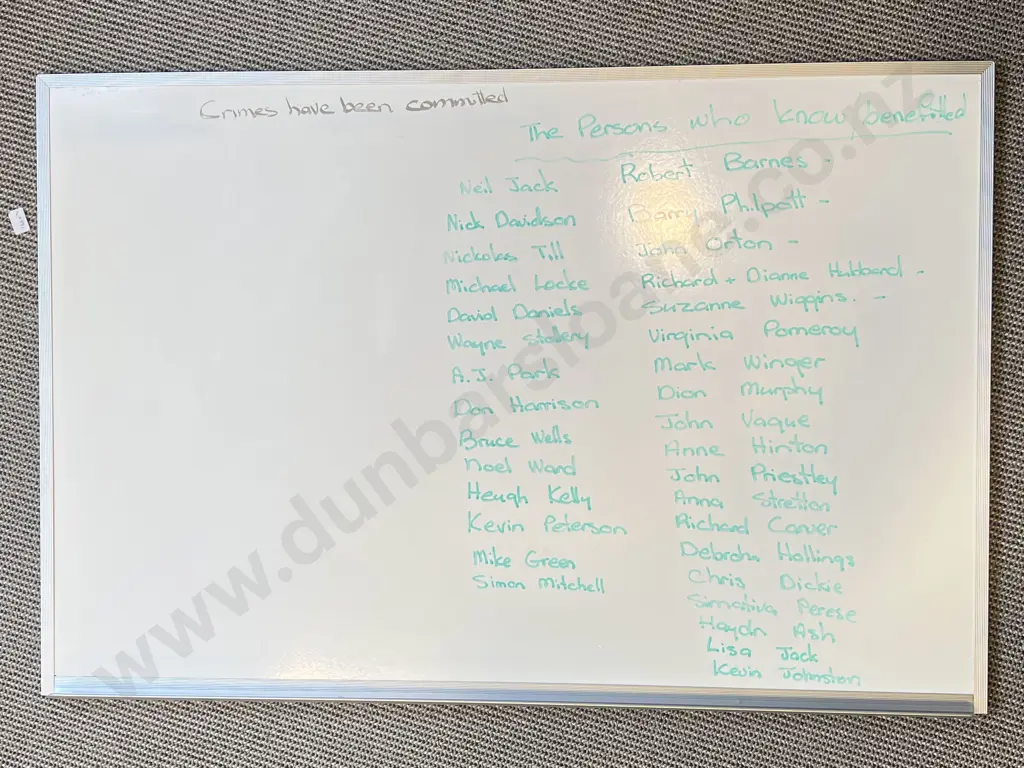 Crimes have been committed
The Persons who know benefitted
Neil Jack
Nick Davidson
Nickolas Till
Michael Locke
David Daniels
Wayne Stabery
A.J. Park
Don Harrison
Bruce Wells
Noel Ward
Heugh Kelly
Kevin Peterson
Mike Green
Simon Mitchell
Robert Barnes -
Barry Philpott -
John Orton -
Richard + Dianne Hubbard -
Suzanne Wiggins. -
Virginia Pomeroy
Mark Winger
Dion Murphy
John Vague
Anne Hinton
John Priestley
Anna Stretton
Richard Carver
Debrohn Hollings
Chris Dickie
Simativa Perese
Haydn Ash
Lisa Jack
Kevin Johnston
www.dunbarsloane.co.nz